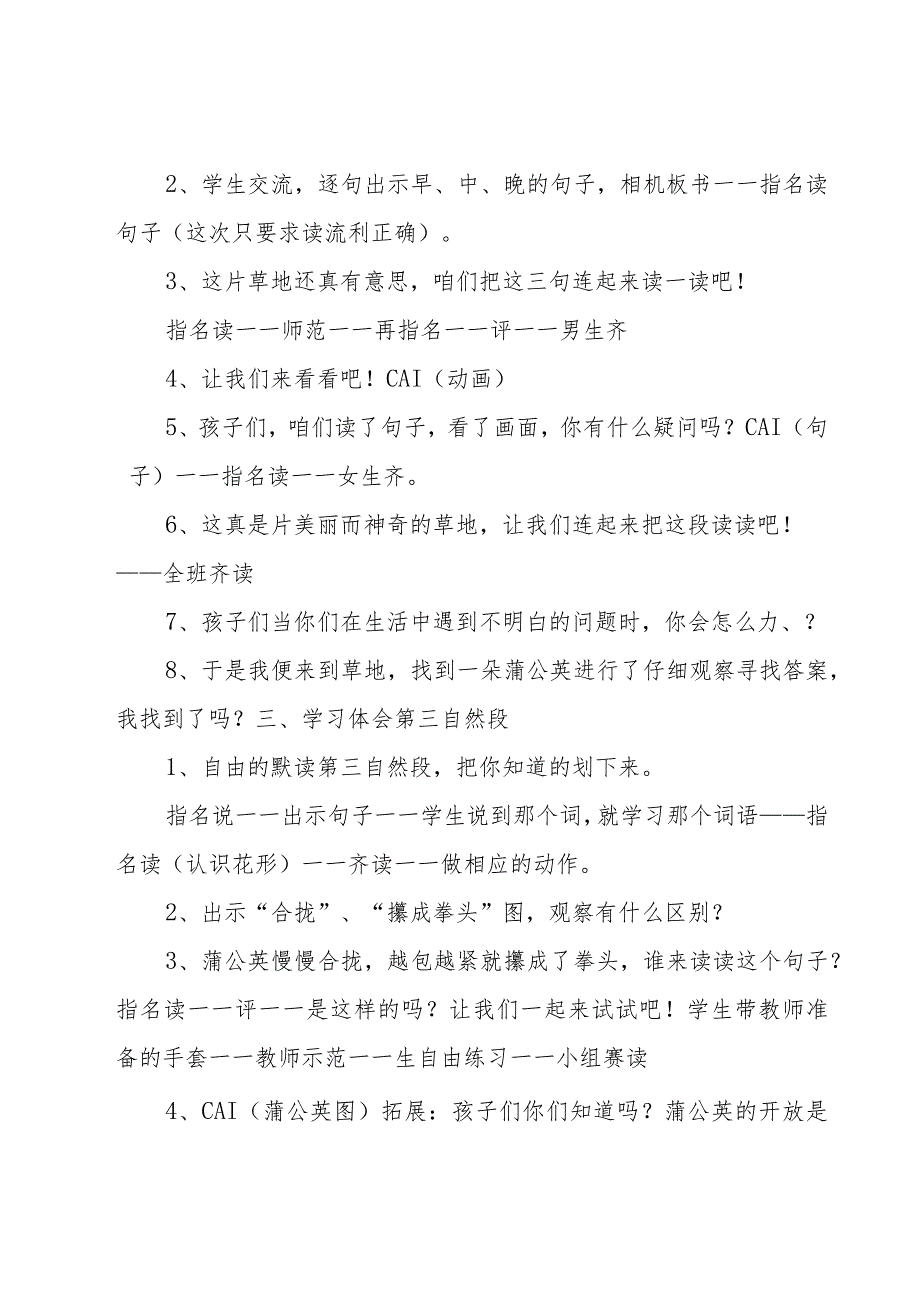 2、学生交流，逐句出示早、中、晚的句子，相机板书一一指名读
句子（这次只要求读流利正确）。
3、这片草地还真有意思，咱们把这三句连起来读一读吧！
指名读一一师范一一再指名一一评一一男生齐
4、让我们来看看吧！CAI（动画）
5、孩子们，咱们读了句子，看了画面，你有什么疑问吗？CAI（句
子）一一指名读一一女生齐。
6、这真是片美丽而神奇的草地，让我们连起来把这段读读吧！
——全班齐读
7、孩子们当你们在生活中遇到不明白的问题时，你会怎么力、？
8、于是我便来到草地，找到一朵蒲公英进行了仔细观察寻找答案，
我找到了吗？三、学习体会第三自然段
1、自由的默读第三自然段，把你知道的划下来。
指名说一一出示句子一一学生说到那个词，就学习那个词语——指
名读（认识花形）一一齐读一一做相应的动作。
2、出示“合拢”、“攥成拳头”图，观察有什么区别？
3、蒲公英慢慢合拢，越包越紧就攥成了拳头，谁来读读这个句子？
指名读一一评一一是这样的吗？让我们一起来试试吧！学生带教师准
备的手套一一教师示范一一生自由练习一一小组赛读
4、CAI（蒲公英图）拓展：孩子们你们知道吗？蒲公英的开放是